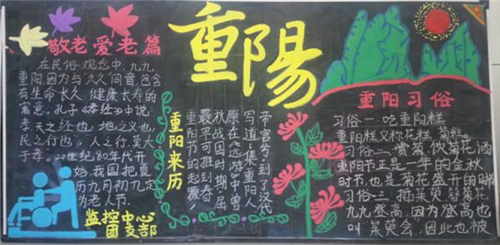 重陽
敬老愛老篇
在民俗观念中,九九
重阳因为与久久同音,包含
有生命长久、健康长寿的
寓意。孔子《孝经》中说:
孝天之经也,地之义也,
民之行也,人之行,莫大
于孝。20世纪80年代开
始,我国把夏
历九月初九定
为老人节。
监控中心
团支部
重阳来历
重阳节的起源,
最早可推到春
秋战国时期,屈
原在《远游》中曾
写道:集重阳入
帝宫兮 到了汉代
重阳习俗
习俗一:吃重阳糕
重阳糕又称花糕、菊糕
习俗二:赏菊饮菊花酒
重阳节正是一年的金秋
时节,也是菊花盛开的时
习俗三:插茱萸簪菊花
九九登高,因为登高也
叫茱萸会,因此也被